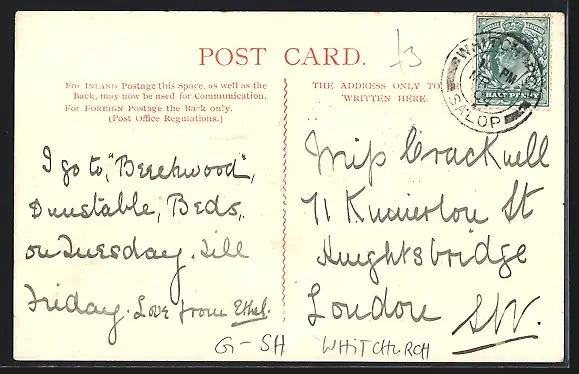 POST CARD.
£3
FOR INLAND Postage this Space, as well as the
Back, may now be used for Communication.
For FOREIGN Postage the Back only.
(Post Office Regulations.)
THE ADDRESS ONLY TO BE
WRITTEN HERE.
WHITCHURCH
PM
SALOP
HALF PENNY
I go to, "Beechwood",
Dunstable, Beds,
on Tuesday. Till
Friday. Love from Ethel.
Miss Cracknell
71 Kinnerton St
Knightsbridge
London S.W.
G-SH WHITCHURCH